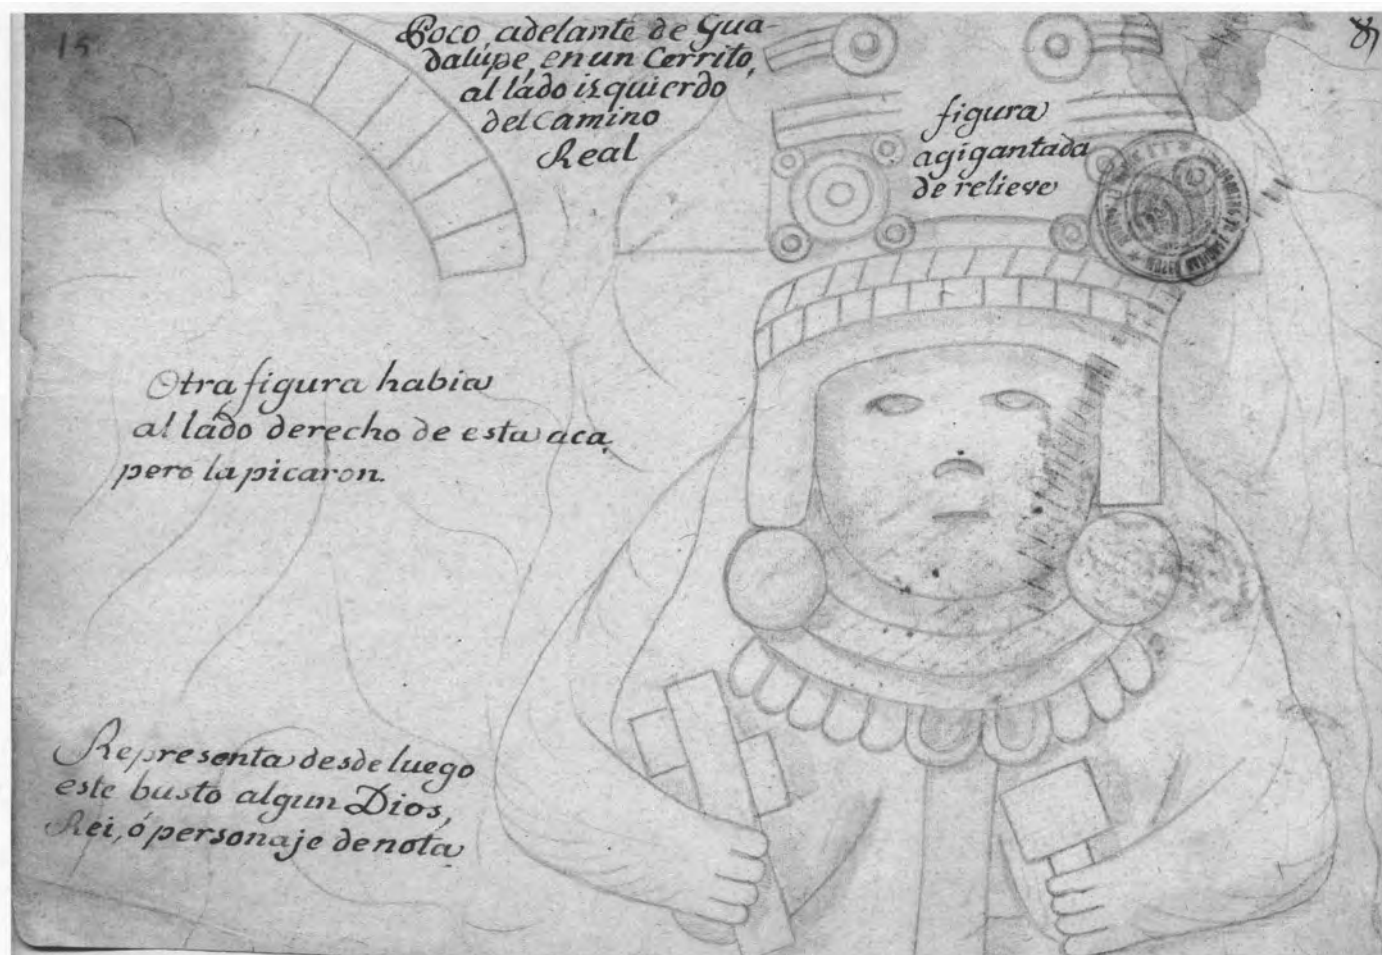 15
Poco adelante de Gua-
dalupe, en un Cerrito,
al lado izquierdo
del camino
Real
figura
agigantada
de relieve
Otra figura habia
al lado derecho de esta aca,
pero la picaron.
Representa desde luego
este busto algun Dios,
Rei, ó personaje de nota